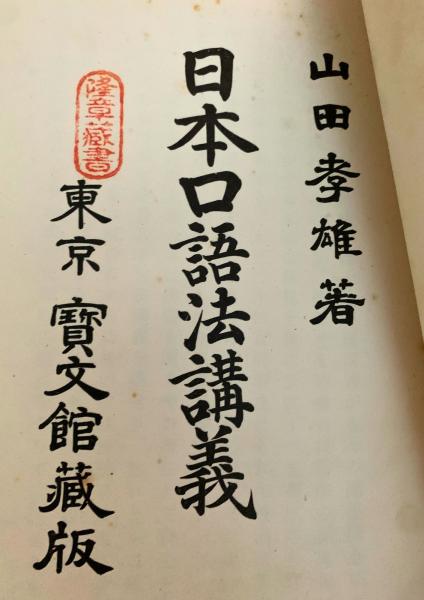 山田孝雄著
日本口語法講義
東京 寳文館藏版
隆章藏書